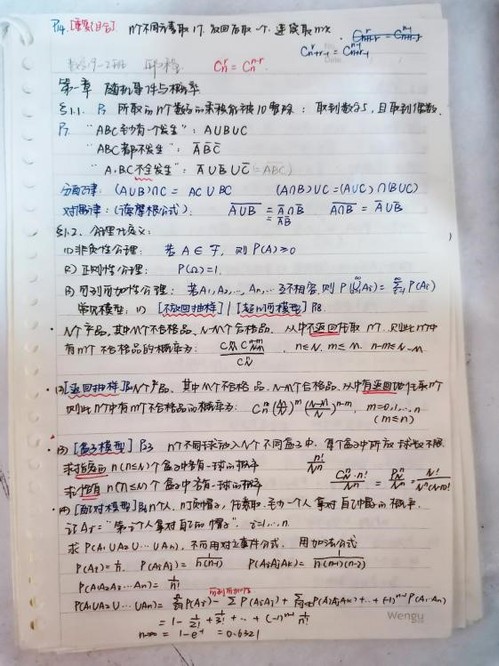 P14.[重复组合] n个不同元素取1个.放回后取一个,连续取r次. C_{n+r-1}^{r} = C_{n+r-1}^{n-1}
C_n^r = C_n^{n-r}
第一章 随机事件与概率
§1.1. P7 所取的n个数的乘积能被10整除:取到数字5,且取到偶数.
P7 "ABC至少有一个发生": A∪B∪C
"ABC都不发生": A̅B̅C̅
"A.BC不全发生": A̅∪B̅∪C̅ (= A̅B̅C̅)
分配律: (A∪B)∩C = AC∪BC (A∩B)∪C=(A∪C)∩(B∪C)
对偶律:(德摩根公式). \overline{A∪B} = A̅∩B̅ = A̅B̅ \overline{A∩B} = A̅∪B̅
§1.2. 公理化定义:
(1)非负性公理: 若A∈F, 则P(A)≥0
(2)正则性公理: P(Ω)=1.
(3)可列可加性公理:若A1,A2,…,An,…互不相容,则P(∪Ai)=ΣP(Ai)
常见模型: (1) [不放回抽样]/[超几何模型] P18.
·N个产品,其中M个不合格品,N-M个合格品. 从中不返回任取n个,则此n个中
有m个不合格品的概率为: C_M^m C_{N-M}^{n-m} / C_N^n , n≤N. m≤M. n-m≤N-M.
·(2)[返回抽样] N个产品,其中M个不合格品,N-M个合格品,从中有返回地任取n个
则此n个中有m个不合格品的概率为: C_n^m (M/N)^m ((N-M)/N)^{n-m}, m=0,1,…,n (m≤n)
·(3)[盒子模型] n个不同球放入N个不同盒子中,每个盒子中所放球数不限.
求指定的n(n≤N)个盒子中各有一球的概率 n!/N^n
求恰有n(n≤N)个盒子中各有一球的概率 C_N^n·n!/N^n = P_N^n/N^n = N!/N^n(N-n)!
·(4)[配对模型] n个人,n顶帽子,任意取.至少一个人拿对自己帽子的概率.
设Ai="第i个人拿对自己的帽子". i=1,…,n
求P(A1∪A2∪…∪An),不可用对立事件公式. 用加法公式
P(Ai)=1/n. P(AiAj)=1/n(n-1) P(AiAjAk)=1/n(n-1)(n-2)
P(A1A2A3…An)=1/n!
P(A1∪A2∪…∪An)=ΣP(Ai)-ΣP(AiAj)+ΣP(AiAjAk)+…+(-1)^{n-1}P(A1…An)
=1-1/2!+1/3!+…+(-1)^{n-1}1/n!
n→∞ =1-e^{-1}=0.6321
Wengu